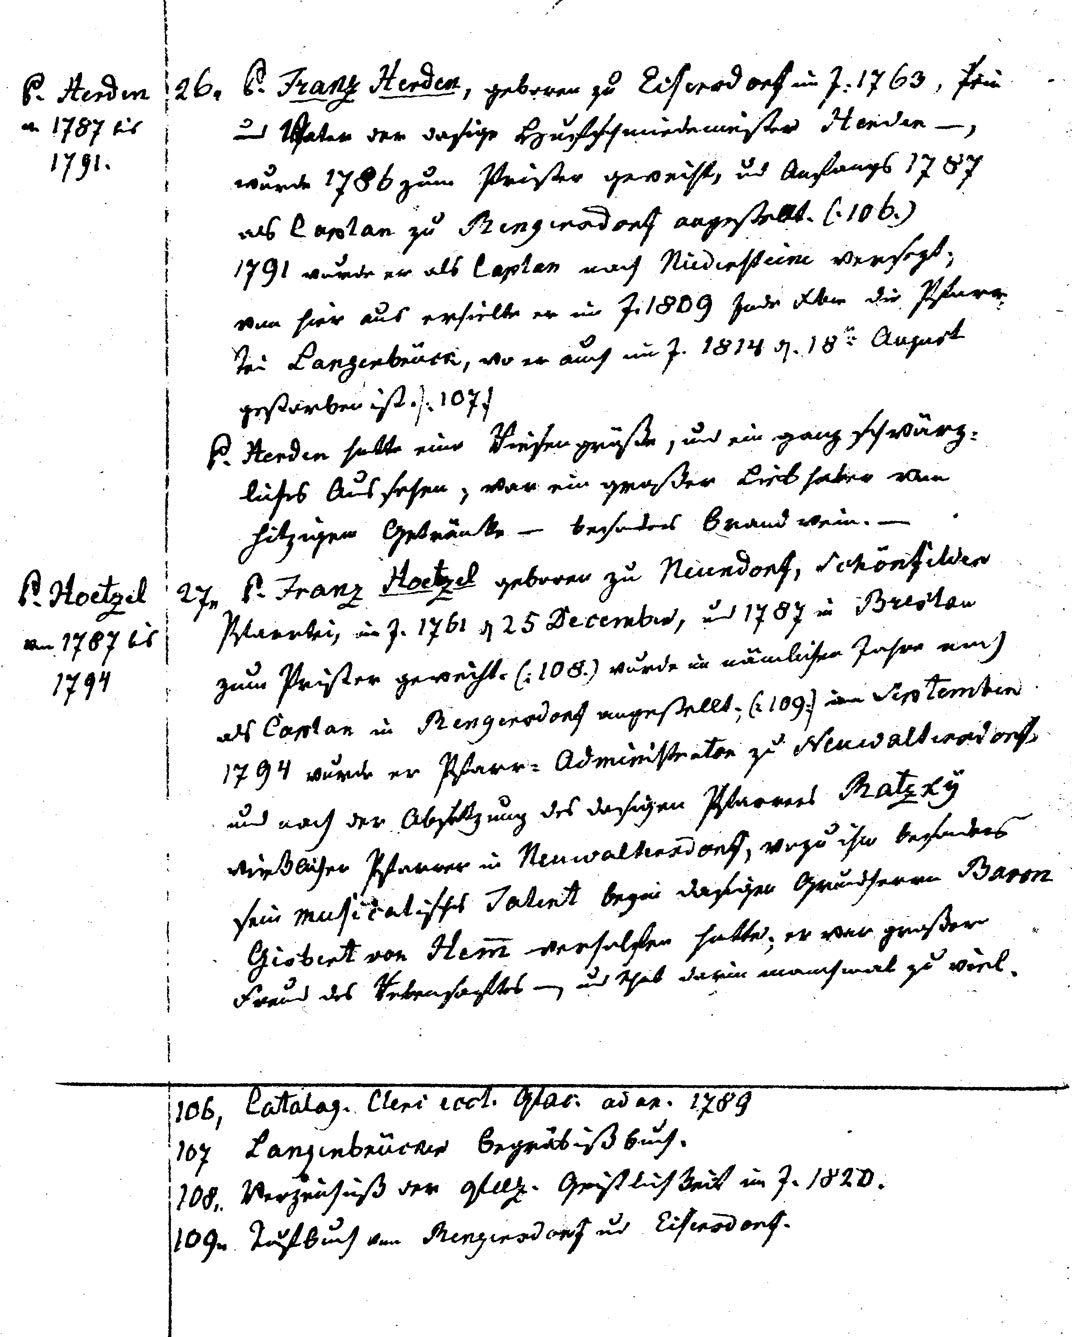 P. Herden
von 1787 bis
1791.
26. P. Franz Herden, geboren zu Eisersdorf im J. 1763, sein
und Vater der dasige Hufschmiedemeister Herden —,
wurde 1786 zum Priester geweiht, und Anfangs 1787
als Caplan zu Rengersdorf angestellt. (:106.)
1791 wurde er als Caplan nach Niedersteine versetzt;
von hier aus erhielte er im J. 1809 die Pfarr-
tei Langenbrück, wo er auch im J. 1814 d. 18ten August
gestorben ist. (:107:)
P. Herden hatte eine Riesengröße, und ein ganz schwärz-
liches Aussehen; war ein großer Liebhaber von
hitzigen Getränke — besonders Brandwein. —
P. Hoetzel
von 1787 bis
1794
27. P. Franz Hoetzel geboren zu Neundorf, Schönfelder
Pfarrtei, im J. 1761 d 25 December, und 1787 in Breslau
zum Priester geweiht. (:108.) wurde im nämlichen Jahre noch
als Caplan in Rengersdorf angestellt; (:109:) im September
1794 wurde er Pfarr-Administrator zu Neuwaltersdorf,
und nach der Absetzung des dasigen Pfarrers Ratzky
wirklicher Pfarrer in Neuwaltersdorf, wozu ihm besonders
sein musicalisches Talent beym dasigen Grundherrn Baron
Gisbert von Hem̄ verholfen hatte; er war großer
Freund des Rebensaftes — und that darin manchmal zu viel.
106, Catalog. Cleri eccl. Glac. ad an. 1789
107 Langenbrücker Begräbnißbuch.
108. Verzeichniß der glatz. Geistlichkeit im J. 1820.
109. Taufbuch von Rengersdorf und Eisersdorf.